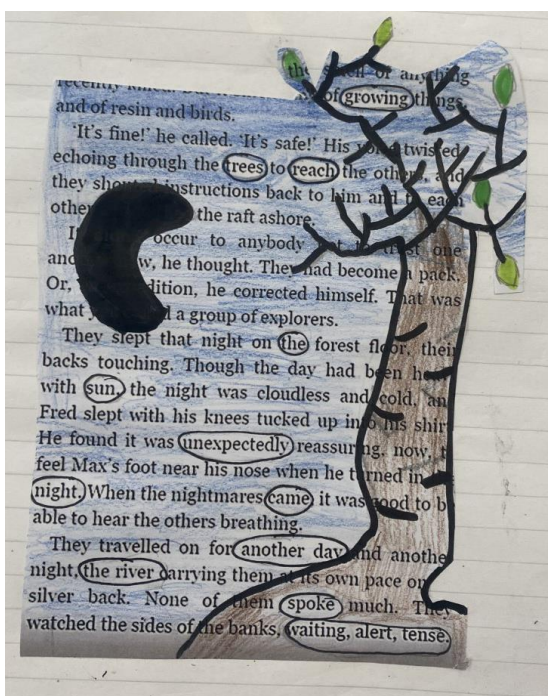 the smell of anything
of growing things,
and of resin and birds.
'It's fine!' he called. 'It's safe!' His twisted
echoing through the trees to reach the others, and
they instructions back to him and to each
other the raft ashore.
occur to anybody one
and w, he thought. They had become a pack.
Or, dition, he corrected himself. That was
what a group of explorers.
They slept that night on the forest floor, their
backs touching. Though the day had been
with sun, the night was cloudless and cold, an
Fred slept with his knees tucked up into his shir
He found it was unexpectedly reassuring, now, t
feel Max's foot near his nose when he turned in
night. When the nightmares came it was good to b
able to hear the others breathing.
They travelled on for another day and anothe
night, the river carrying them at its own pace on
silver back. None of them spoke much. They
watched the sides of the banks, waiting, alert, tense.